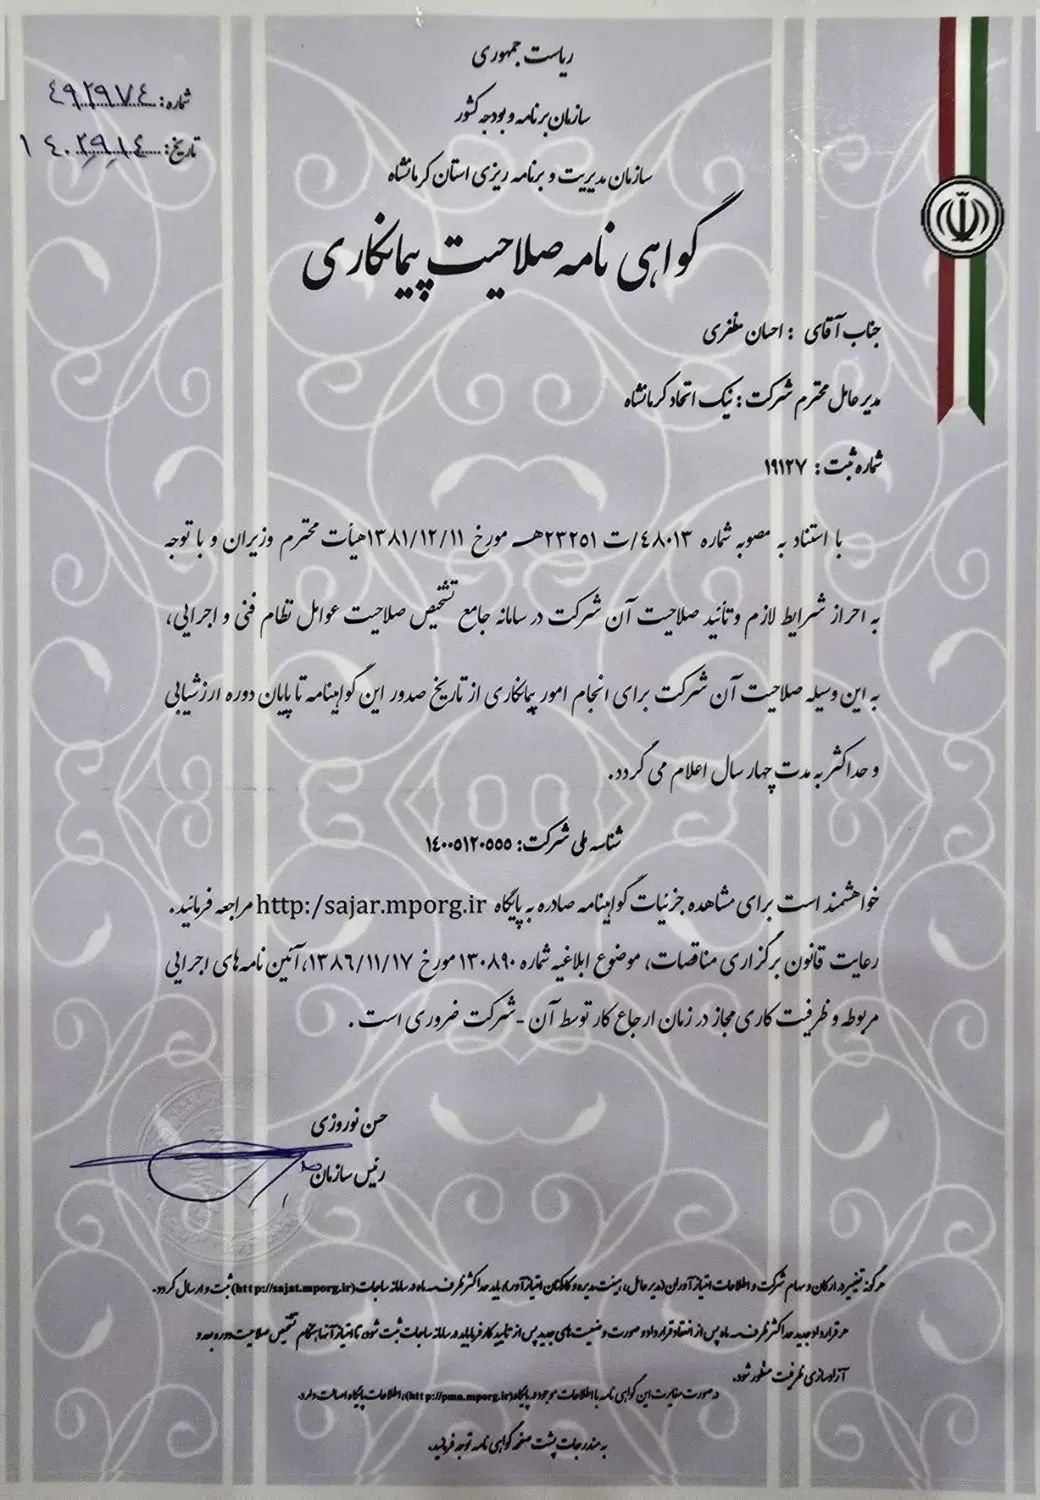 ریاست جمهوری
سازمان برنامه و بودجه کشور
سازمان مدیریت و برنامه ریزی استان کرمانشاه
شماره: ٤٩٢٩٧٤
تاریخ: ١٤٠٢٫٩٫١٤
گواهی نامه صلاحیت پیمانکاری
جناب آقای : احسان مظفری
مدیر عامل محترم شرکت : نیک اتحاد کرمانشاه
شماره ثبت : ١٩١٢٧
با استناد به مصوبه شماره ٤٨٠١٣/ت ٢٣٢٥١هـ مورخ ١٣٨١/١٢/١١هیأت محترم وزیران و با توجه
به احراز شرایط لازم و تأئید صلاحیت آن شرکت در سامانه جامع تشخیص صلاحیت عوامل نظام فنی و اجرایی،
به این وسیله صلاحیت آن شرکت برای انجام امور پیمانکاری از تاریخ صدور این گواهینامه تا پایان دوره ارزشیابی
و حداکثر به مدت چهار سال اعلام می گردد.
شناسه ملی شرکت: ١٤٠٠٥١٢٠٥٥٥
خواهشمند است برای مشاهده جزئیات گواهینامه صادره به پایگاه http:/sajar.mporg.ir مراجعه فرمائید.
رعایت قانون برگزاری مناقصات، موضوع ابلاغیه شماره ١٣٠٨٩٠ مورخ ١٣٨٦/١١/١٧، آئین نامه های اجرایی
مربوطه و ظرفیت کاری مجاز در زمان ارجاع کار توسط آن -شرکت ضروری است .
حسن نوروزی
رئیس سازمان
هرگونه تغییر در ارکان و سهام شرکت و اطلاعات امتیازآوران(مدیرعامل، هیئت مدیره و کارکنان امتیازآور) باید حداکثر ظرف سه ماه در سامانه ساجات(http://sajat.mporg.ir) ثبت و ارسال گردد.
هر قرارداد جدید حداکثر ظرف سه ماه پس از انعقاد قرارداد و صورت وضعیت های جدید پس از تایید کارفرما باید در سامانه ساجات ثبت شود، تا امتیاز آنها هنگام تشخیص صلاحیت دوره بعد و
آزادسازی ظرفیت منظور شود.
در صورت مغایرت این گواهی نامه با اطلاعات موجود در پایگاه(http://pma.mporg.ir)، اطلاعات پایگاه اصالت دارد.
به مندرجات پشت صفحه گواهی نامه توجه فرمائید.